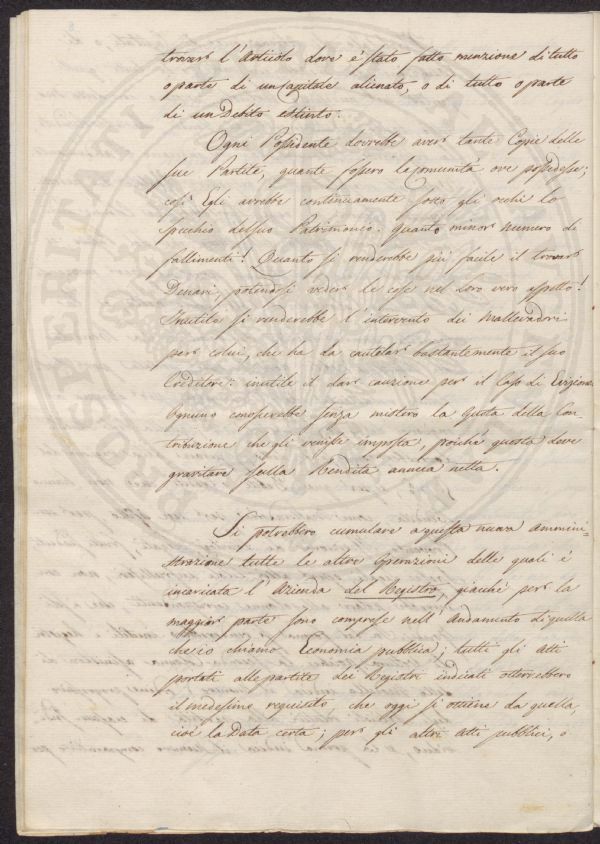 trovare l'Articolo dove è stato fatto menzione di tutto
o parte di un Capitale alienato, o di tutto o parte
di un Debito estinto.
Ogni Possidente dovrebbe avere tante Copie delle
sue Partite, quante fossero le Comunità ove possedesse;
così Egli avrebbe continuamente sotto gli occhi lo
specchio del suo Patrimonio. Quanto minor numero di
fallimenti! Quanto si renderebbe più facile il trovare
Denari, potendosi vedere le cose nel loro vero aspetto!
Inutile si renderebbe l'intervento dei Mallevadori
per colui, che ha da cautelare bastantemente il suo
Creditore: inutile il dare cauzione per il Caso di Evizione
Ognuno conoscerebbe senza mistero la Quota della Con-
tribuzione che gli venisse imposta, poiché questa deve
gravitare sulla Rendita annua netta.
Si potrebbero cumulare a questa nuova ammini-
strazione tutte le altre Operazioni delle quali è
incaricata l'Azienda del Registro, giacché per la
maggior parte sono comprese nell'Andamento di quella
che io chiamo Economia pubblica; tutti gli Atti
portati alle partite dei Registri indicati otterrebbero
il medesimo requisito che oggi si ottiene da quella,
cioè la Data certa; per gli altri Atti pubblici, o
PROSPERITATI